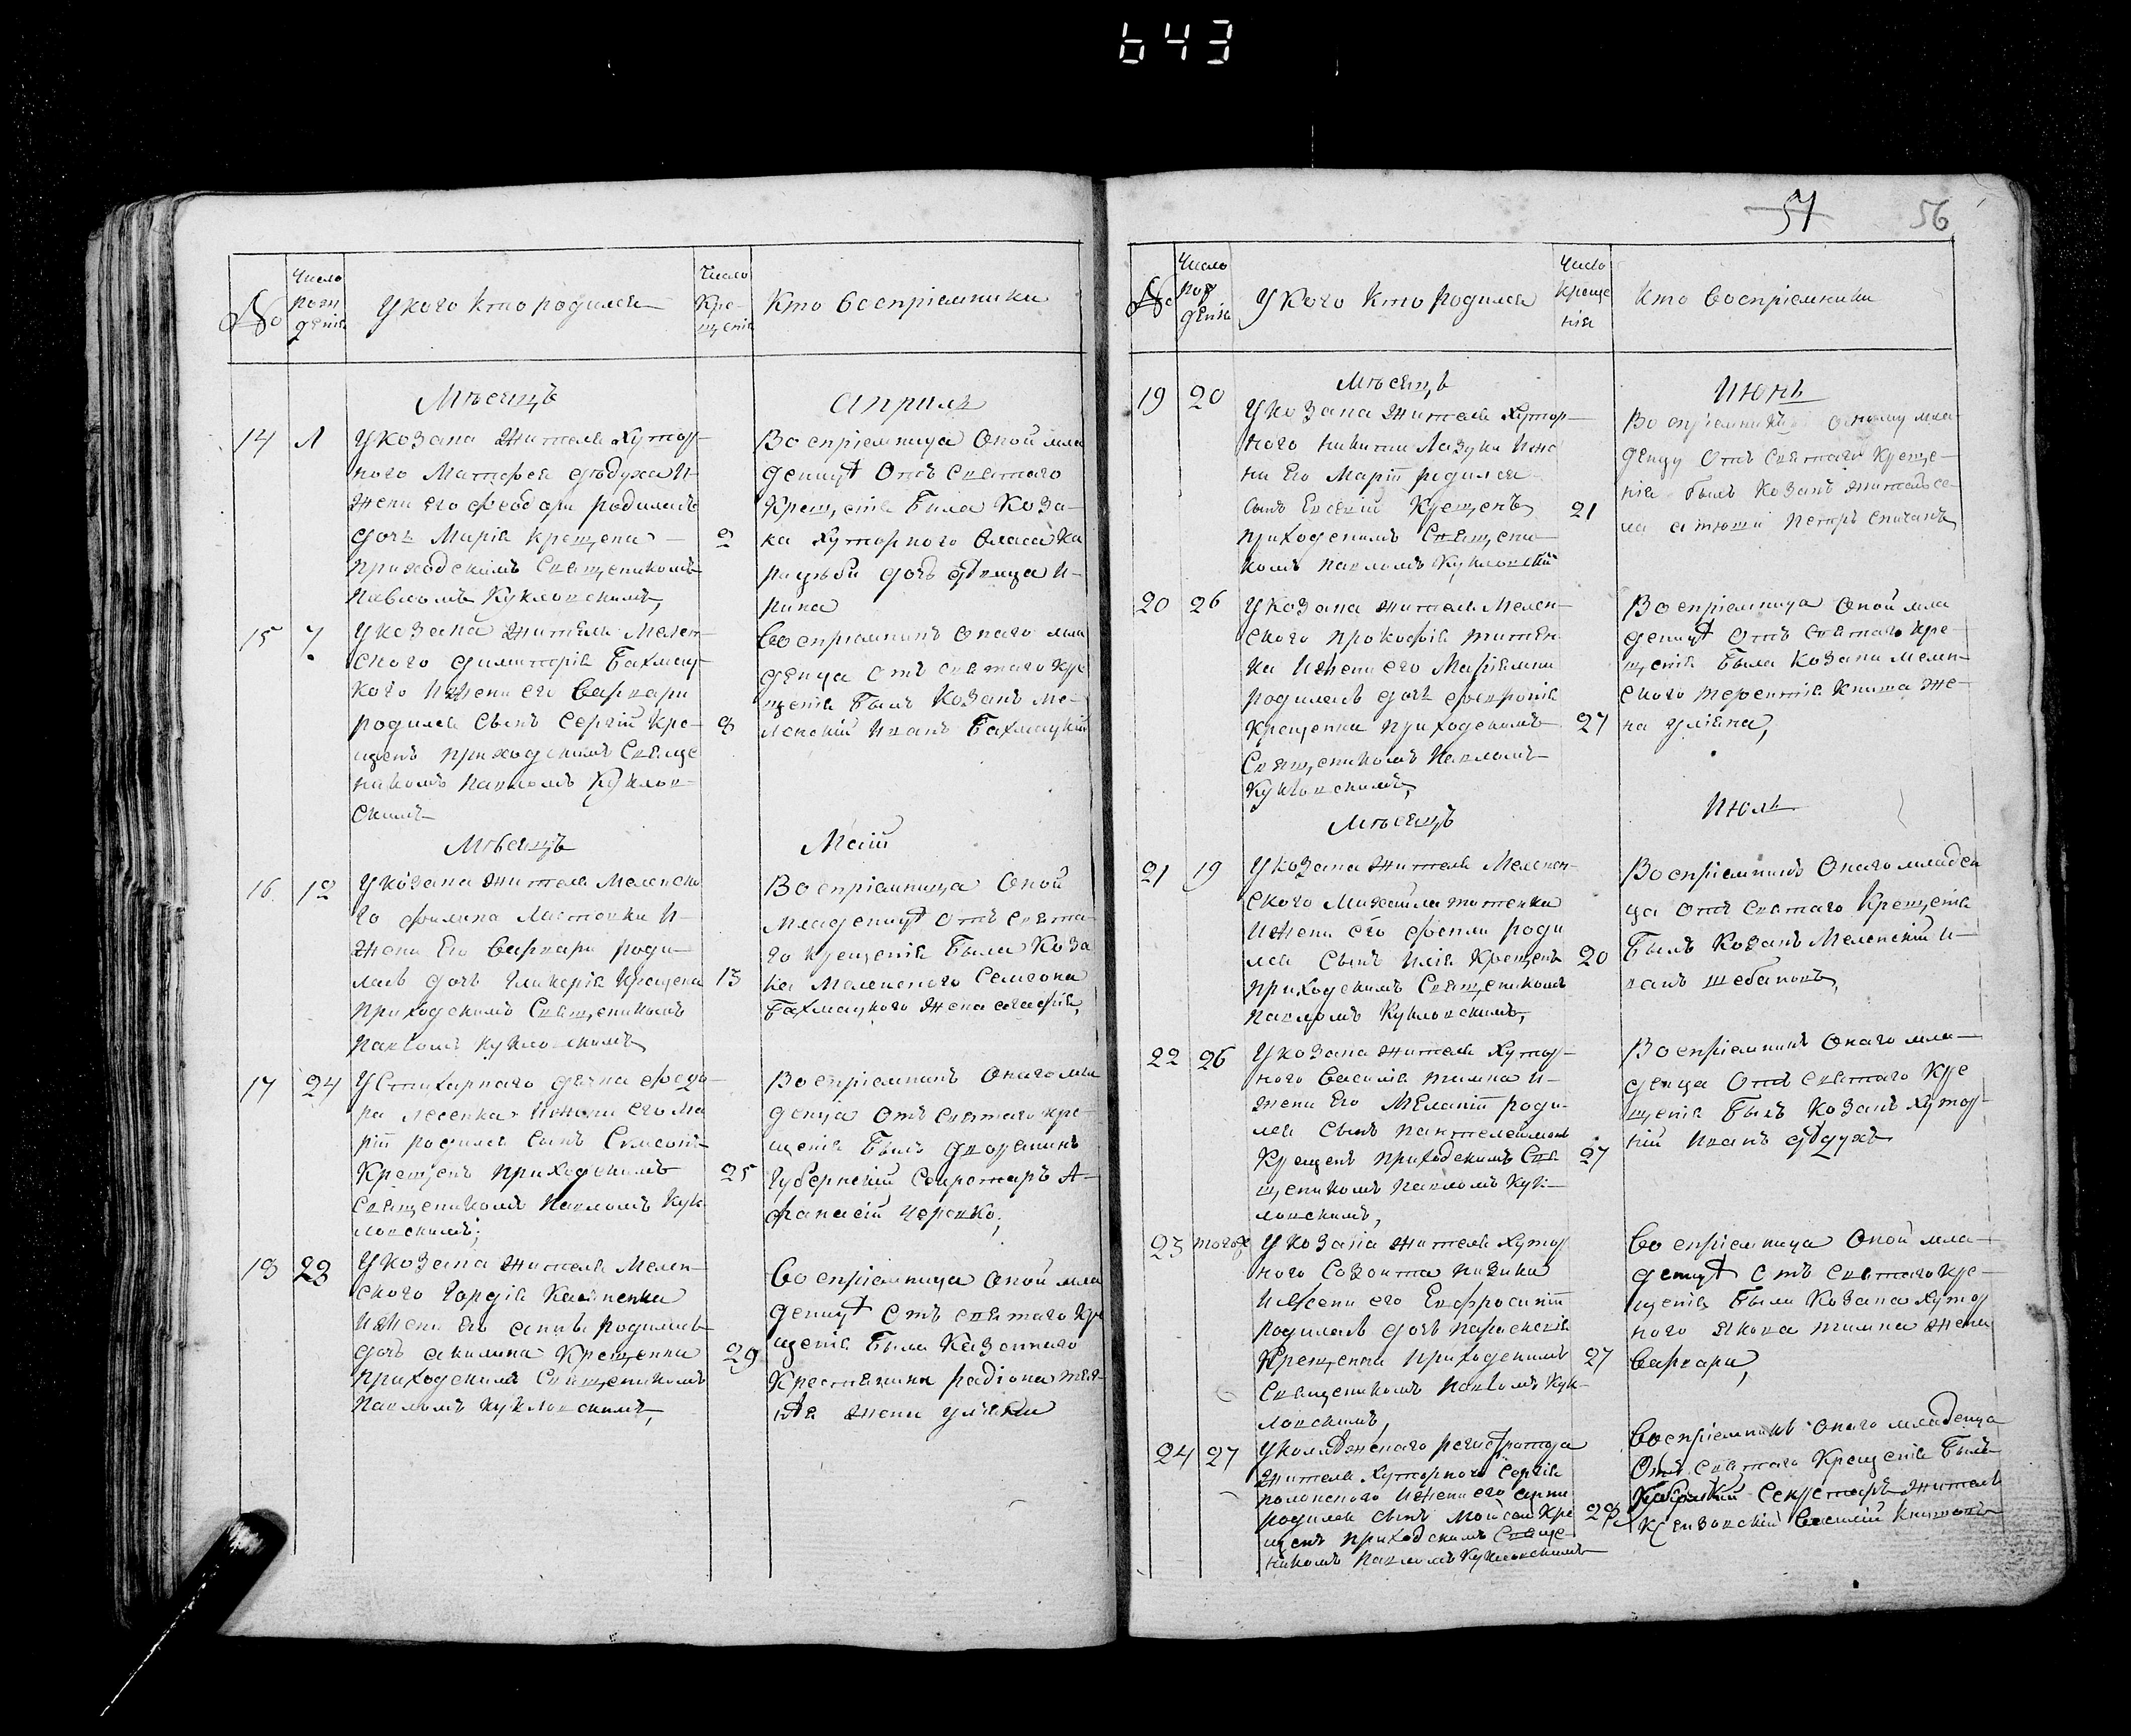 643
57
56
№
Число рожденія
У кого кто родился
Число Крещенія
Кто воспріемники
Мѣсяцъ Апрель
14
У козака жителя Хутор-
ного Матфея Дѣдуха и
жены его Феодоры родилась
дочь Марія крещена
приходскимъ Священикомъ
Павломъ Кукловскимъ,
2
Воспріемница оной мла
деницѣ Отъ Святаго
Крещенія была Коза-
ка Хуторного Власа
дочь дѣвица И-
рина
15
7
У козака жителя Мелен-
ского Димитрія Бахмац-
кого и жены его Варвары
родился Сынъ Сергій Кре-
щенъ приходскимъ Свяще
никомъ Павломъ Куклов-
скимъ
8
Воспріемникъ онаго мла
денца отъ святаго Кре
щенія былъ Козакъ Ме-
ленскій Иванъ Бахмацкій
Мѣсяцъ Маій
16
12
У козака жителя Меленско
го Филипа и
жены Его Варвары роди-
лась дочь Гликерія Крещена
приходскимъ Священикомъ
Павломъ Кукловскимъ
13
Воспріемница Оной
младеницѣ отъ Свята
го крещенія была Коза
ка Меленского Самсона
Бахмацкого жена Агафія,
17
24
дячка Федо-
ра Лесенка и жены его Ма
ріи родился сынъ Симеонъ
Крещенъ приходскимъ
Священикомъ Павломъ Кук
ловскимъ;
25
Воспріемникъ Онаго мла
денца отъ Святаго кре-
щенія былъ дворянинъ
Губернскій Секретаръ А-
фанасій Черовко,
18
28
У козака жителя Мелен-
ского Гордія
и жены Его Анны родилась
дочь Акилина Крещенна
приходскимъ Священикомъ
Павломъ Кукловскимъ,
29
Воспріемница Оной мла
деницѣ отъ святаго Кре
щенія была Казенного
Крестянина Радіона
жена Уліяна
№
Число рожденія
У кого кто родился
Число крещенія
Кто воспріемники
Мѣсяцъ Июнь
19
20
У козака жителя Хутор-
ного Никиты Лазуки и же
ны Его Маріи родился
сынъ Евсевій Крещенъ
приходскимъ Священи
комъ Павломъ Кукловскій
21
Воспріемникъ оному мла
денцу Отъ Святаго Креще-
нія былъ Козакъ житель се-
ла Атюши Петръ
20
26
У козака жителя Мелен-
ского Прокофія Титен
ка и жены его Маріямны
родилась дочь Февронія
Крещенна приходскимъ
Священикомъ Павломъ
Кукловскимъ,
27
Воспріемница Оной мла
деницѣ Отъ святаго Кре-
щенія была козака Мелен-
ского Терентія Книша же-
на Уліяна,
Мѣсяцъ Июль
21
19
У козака жителя Мелен-
ского Михайла Титенка
и жены его Феклы роди
лся Сынъ Илія Крещенъ
приходскимъ Священикомъ
Павломъ Кукловскимъ,
20
Воспріемникъ Онаго младен
ца отъ Святаго Крещенія
былъ Козакъ Меленскій И-
ванъ Шебановъ,
22
26
У козака жителя Хутор-
ного Василія Тимка и
жены Его Меланіи роди-
лся сынъ Пантелеймонъ
Крещенъ приходскимъ Свя
щеникомъ Павломъ Кук-
ловскимъ,
27
Воспріемникъ Онаго мла-
денца Отъ святаго Кре
щенія былъ Козакъ Хутор-
ній Иванъ Дѣдухъ
23
тогож
У козака жителя Хутор
ного Созонта
и жены его Ефросиніи
родилась дочь Параскевія
Крещенна приходскимъ
Священикомъ Павломъ Кук-
ловскимъ,
27
Воспріемница Оной мла-
деницѣ Отъ Святаго кре-
щенія была Козака Хутор
ного Якова Тимка жена
Варвара,
24
27
У колѣжскаго регистратора
жителя Хуторного Сергія
Полонского и жены его Анны
родился сынъ Мойсей Кре
щенъ приходскимъ Свяще-
никомъ Павломъ Кукловскимъ
28
Воспріемникъ Онаго младенца
Отъ Святаго Крещенія былъ
Секретаръ житель
Василій